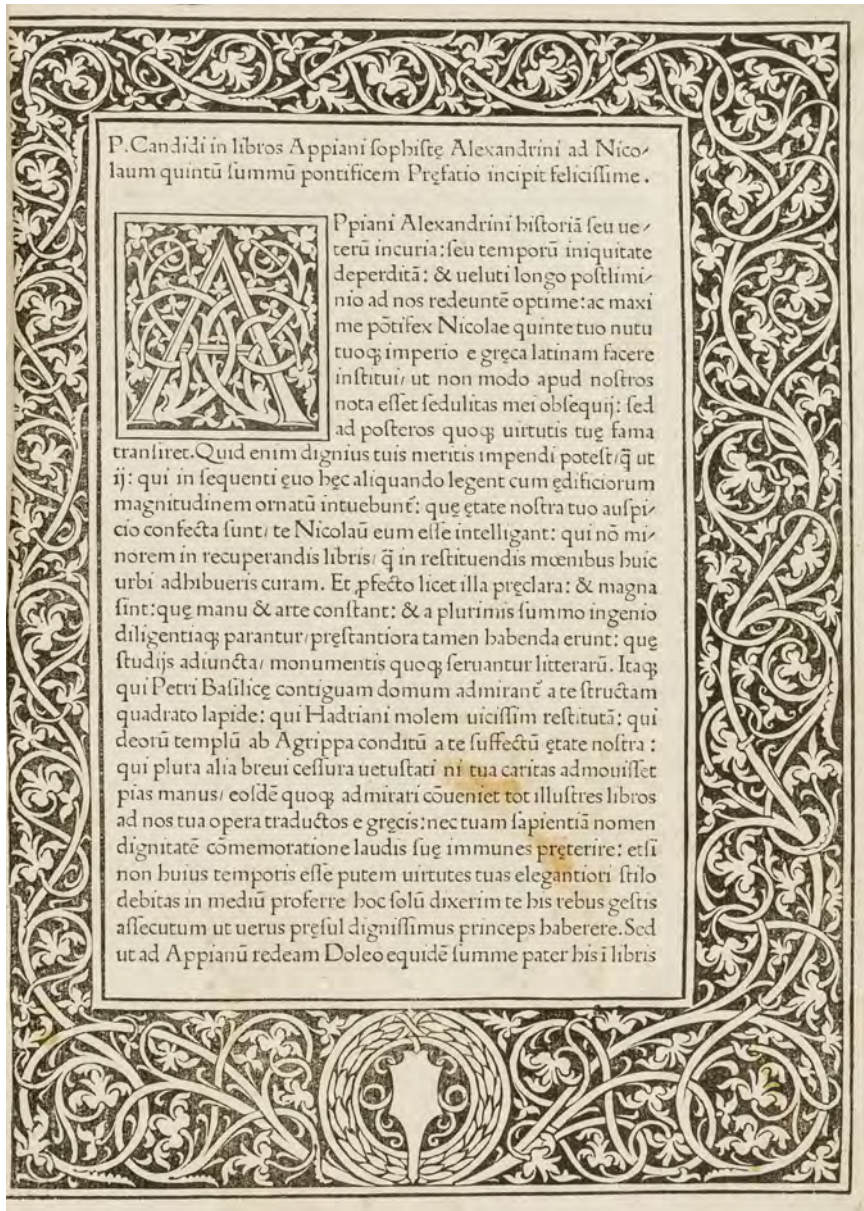 P.Candidi in libros Appiani sophistę Alexandrini ad Nico⸗
laum quintū summū pontificem Pręfatio incipit felicissime.
APpiani Alexandrini historiā seu ue⸗
terū incuria:seu temporū iniquitate
deperditā: & ueluti longo postlimi⸗
nio ad nos redeuntē optime:ac maxi
me põtifex Nicolae quinte tuo nutu
tuoqꝫ imperio e gręca latinam facere
institui/ ut non modo apud nostros
nota esset sedulitas mei obsequij: sed
ad posteros quoqꝫ uirtutis tuę fama
transiret.Quid enim dignius tuis meritis impendi potest/q̄ ut
ij: qui in sequenti ęuo hęc aliquando legent cum ędificiorum
magnitudinem ornatū intuebunt̄: quę ętate nostra tuo auspi⸗
cio confecta sunt/ te Nicolaū eum esse intelligant: qui nō mi⸗
norem in recuperandis libris/ q̄ in restituendis mœnibus huic
urbi adhibueris curam. Et ꝓfecto licet illa pręclara: & magna
sint:quę manu & arte constant: & a plurimis summo ingenio
diligentiaqꝫ parantur/pręstantiora tamen habenda erunt: quę
studijs adiuncta/ monumentis quoqꝫ seruantur litterarū. Itaqꝫ
qui Petri Basilicę contiguam domum admirant̄ a te structam
quadrato lapide: qui Hadriani molem uicissim restitutā: qui
deorū templū ab Agrippa conditū a te suffectū ętate nostra :
qui plura alia breui cessura uetustati ni tua caritas admouisset
pias manus/ eosdē quoqꝫ admirari cōueniet tot illustres libros
ad nos tua opera traductos e gręcis:nec tuam sapientiā nomen
dignitatē cōmemoratione laudis suę immunes pręterire: etsi
non huius temporis esse putem uirtutes tuas elegantiori stilo
debitas in mediū proferre hoc solū dixerim te his rebus gestis
assecutum ut uerus pręsul dignissimus princeps haberere.Sed
ut ad Appianū redeam Doleo equidē summe pater his ī libris